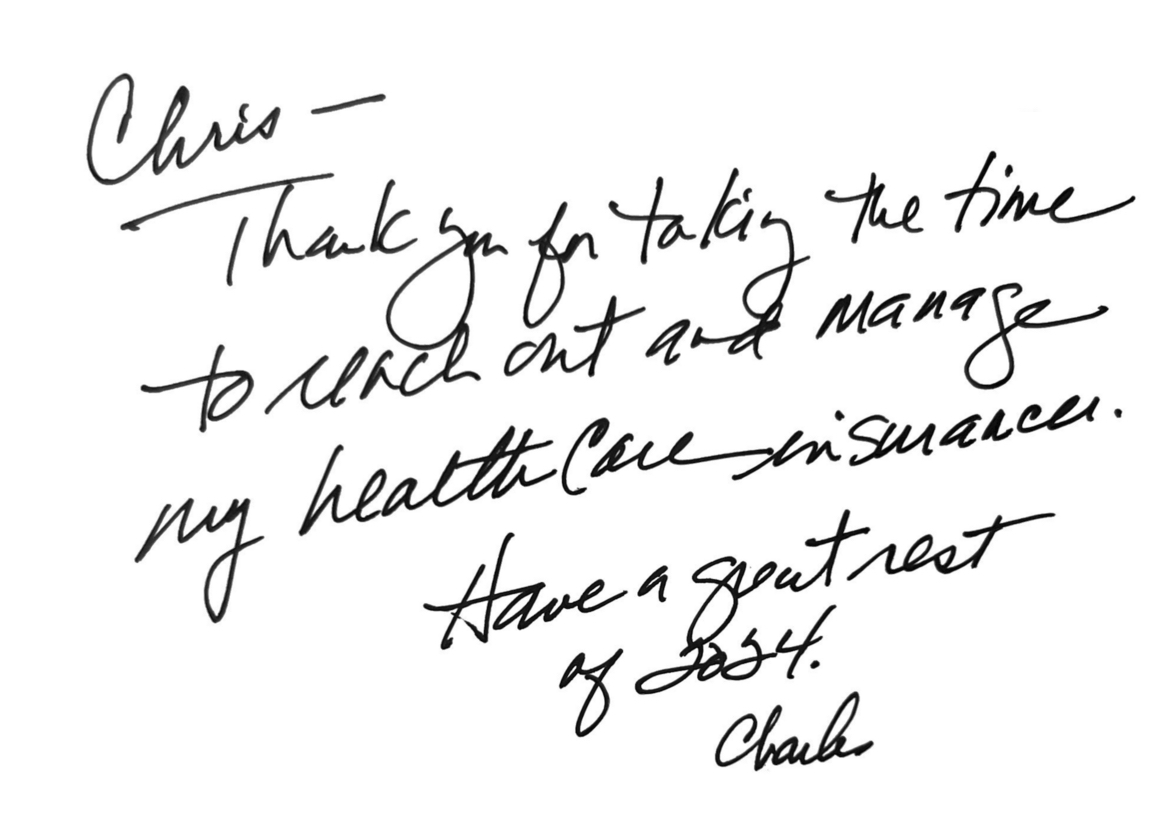 Chris —
Thank you for taking the time
to reach out and manage
my health care insurances.
Have a great rest
of 2024.
Charles